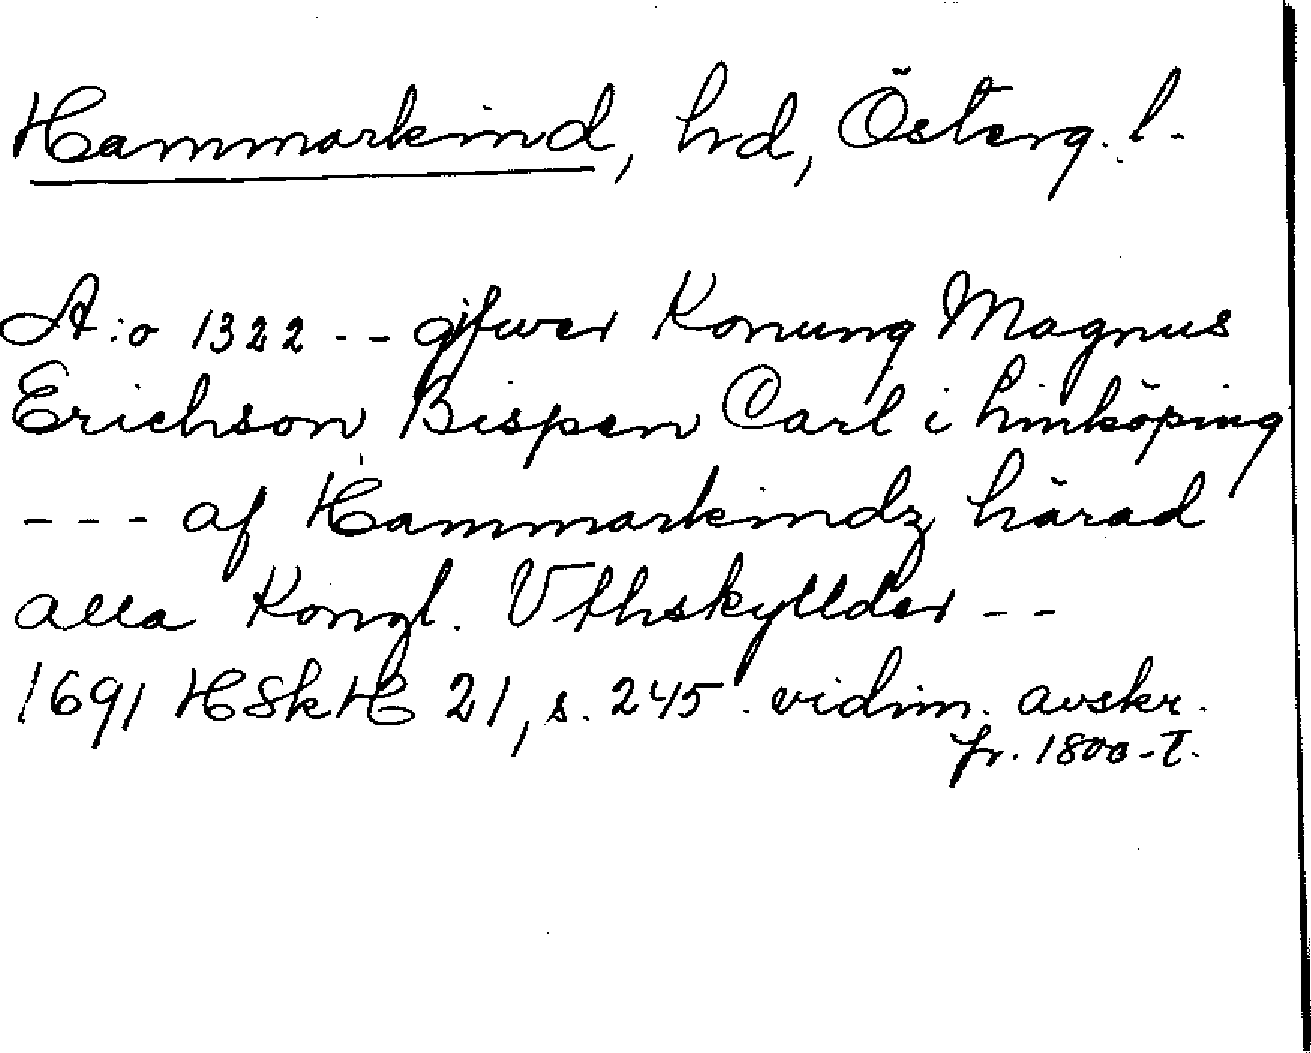 Hammarkind, hd, Österg. l.
A:o 1322 -- gifwer Konung Magnus
Erichson Bispen Carl i Linköping
--- af Hammarkindz härad
alla Kongl. Vthskyllder --
1691 HSkH 21, s. 245. vidim. avskr.
fr. 1800-t.